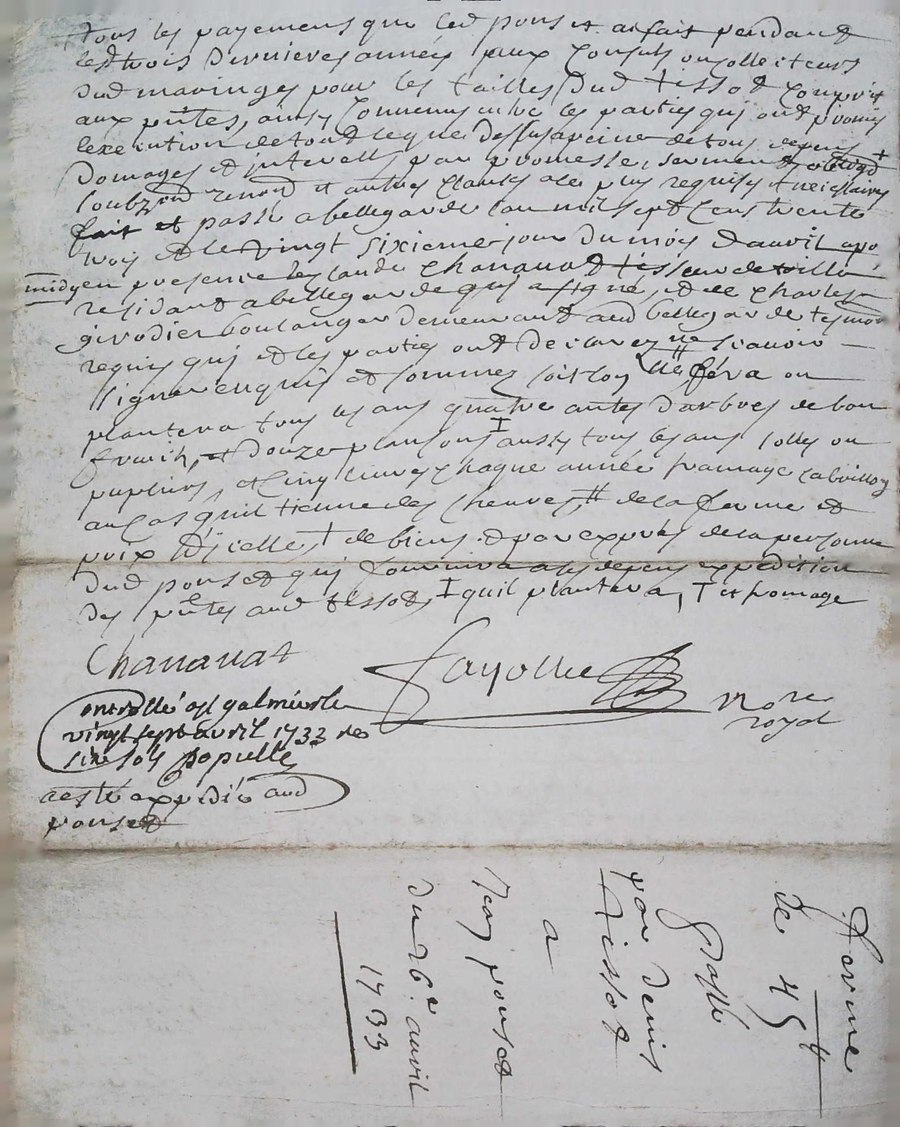 tous les payemens que led ponset a fait pendant
lesd trois dernieres années aux Consuls ou collecteurs
dud maringes pour les tailles dud tissot compris
aux pntes, ainsy Convenus entre les parties qui ont promis
lexecution de tout le que dessus a peine de tous depens
Domages et interests par promesse, serment
soubz renon et autres clauses a ce plus requises + necessaires
fait et passé a bellegarde lan mil sept Cens trente
trois et le vingt sixieme jour du mois d'auril apres
midy en presence de claude Chanauat tisseur de toille
residant a bellegarde qui a signé, et de Charles
girodier boulanger demeurant aud bellegarde tesmoins
requis qui et les parties ont declarez ne scauoir
signer enquis et sommez fera ou
plantera tous les ans quatre antes d'arbres de bon
fruit, et douze plansons I aussy tous les ans solles ou
pupliers, et cinq liures chaque année fromage cabrillon
au cas quil tienne des cheures, # de la ferme et
prix d'icelle, + de biens et par exprés de la personne
dud ponset qui fournira a ses depens expedition
des pntes aud tissot, I quil plantera, T et fromage
Chanauat
Fayolle
nore
royal
Controllé a st galmier le
vingt sept auril 1733 res
six sols populle
a esté expedié aud
ponset
Ferme
de 45 #
Passé
par denis
tissot
a
Jean ponset
du 26e auril
1733